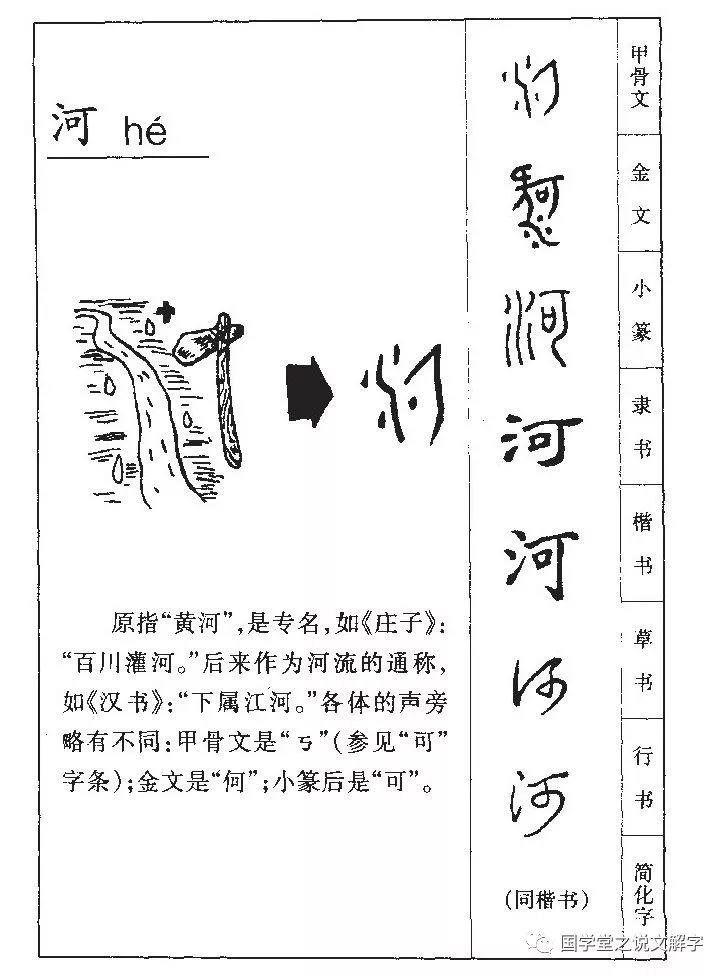 河 hé
原指“黄河”,是专名,如《庄子》:
“百川灌河。”后来作为河流的通称,
如《汉书》:“下属江河。”各体的声旁
略有不同:甲骨文是“ㄎ”(参见“可”
字条);金文是“何”;小篆后是“可”。
河
河
河
河
河
(同楷书)
甲骨文
金文
小篆
隶书
楷书
草书
行书
简化字
国学堂之说文解字